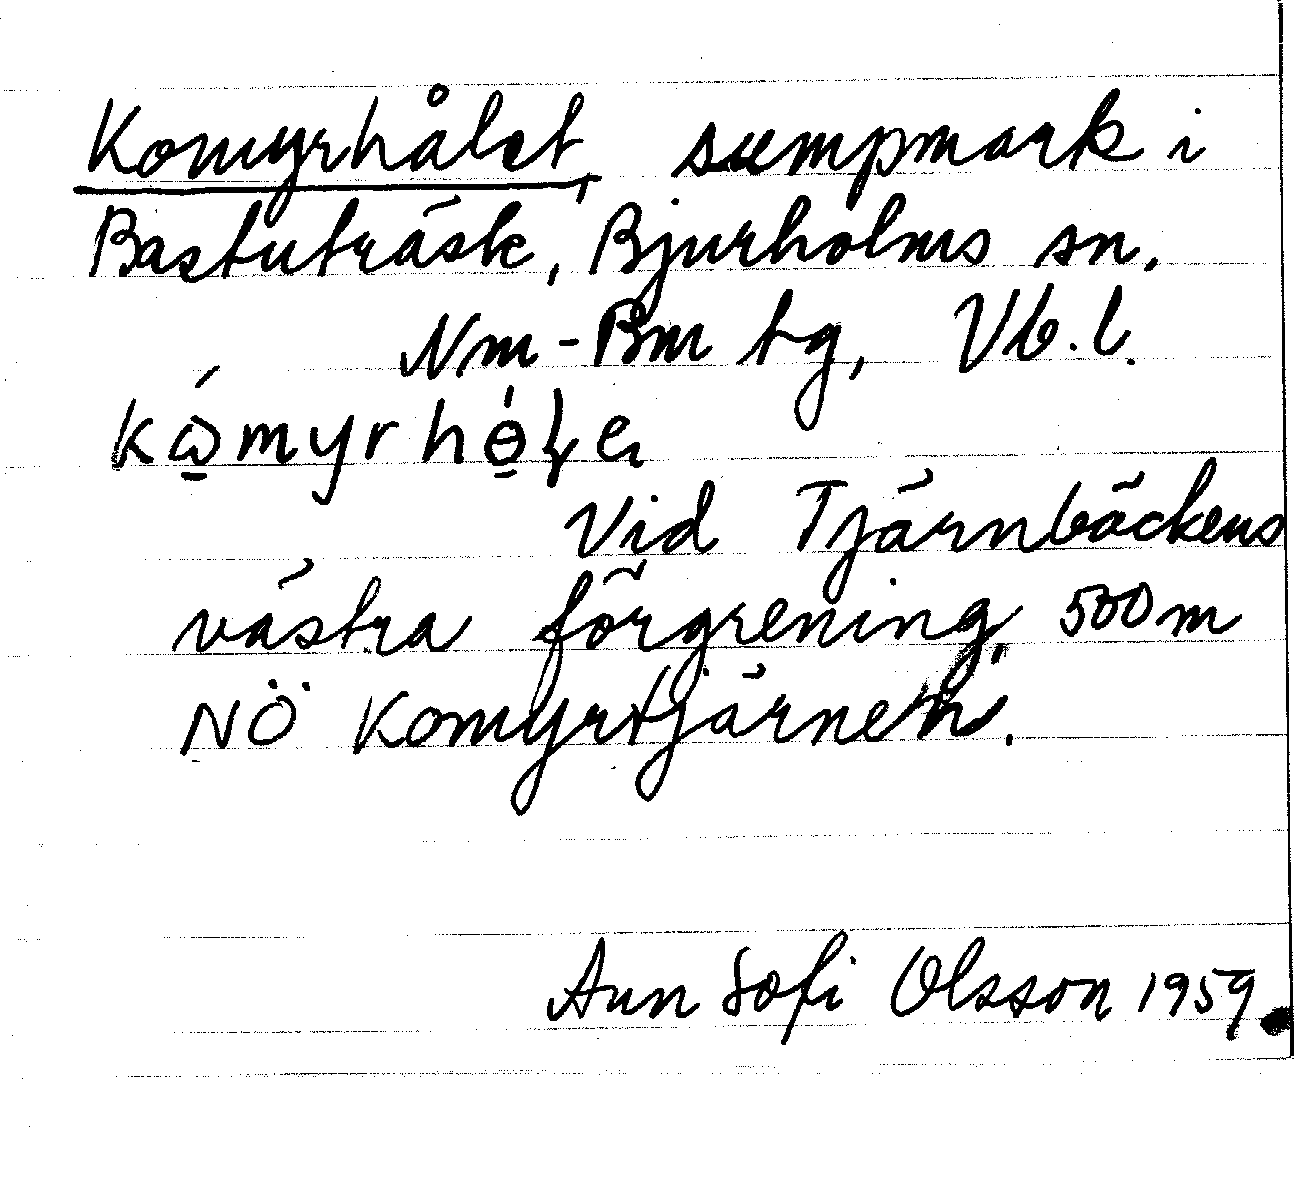 Komyrhålet, sumpmark i
Bastuträsk, Bjurholms sn,
Nm-Bm tg, Vb. l.
Vid Tjärnbäckens
västra förgrening, 500 m
NÖ Komyrtjärnen.
Ann Sofi Olsson 1959